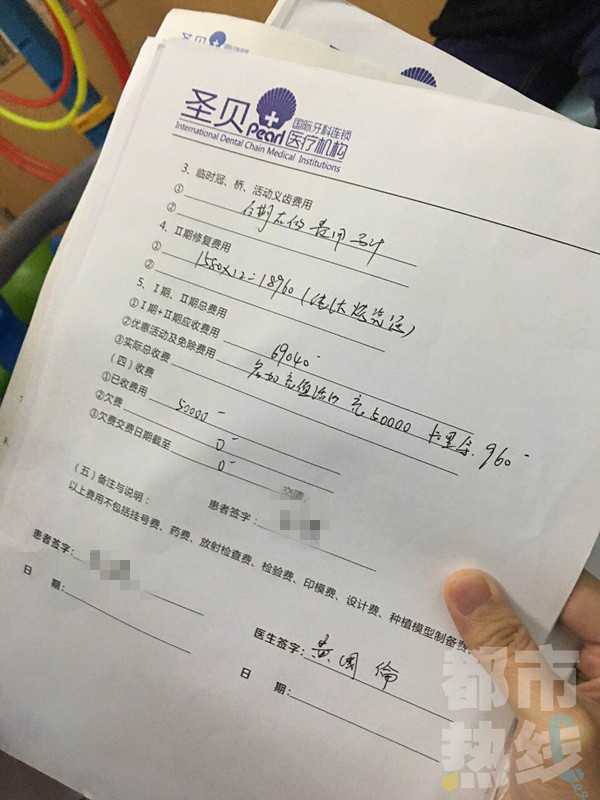 圣贝
圣贝
Pearl
国际牙科连锁
医疗机构
International Dental Chain Medical Institutions
3、临时冠、桥、活动义齿费用
①
② 费用
4、Ⅱ期修复费用
① 1580×12=18960
②
5、Ⅰ期、Ⅱ期总费用
①Ⅰ期+Ⅱ期应收费用 69040-
②优惠活动及免除费用 参加充值活动 充50000 卡里余 960-
③实际总收费
(四)收费
①已收费用 50000-
②欠费 0-
③欠费交费日期截至 0-
交费
患者签字:
(五)备注与说明:
以上费用不包括挂号费、药费、放射检查费、检验费、印模费、设计费、种植模型制备费
患者签字:
日 期:
医生签字:黄国倫
日 期:
都市
热线